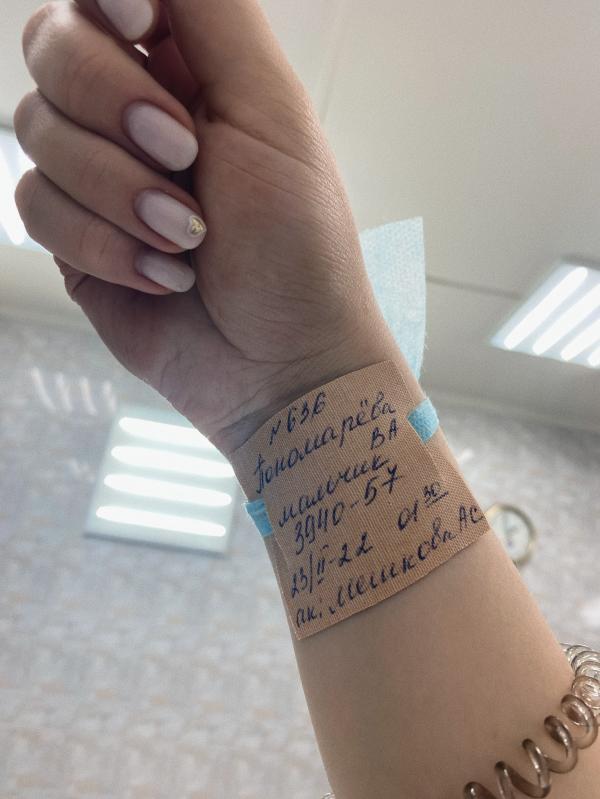 N636
Пономарёва
ВА
мальчик
3940-57
23/II-22 01 30
ак. Мешкова АС